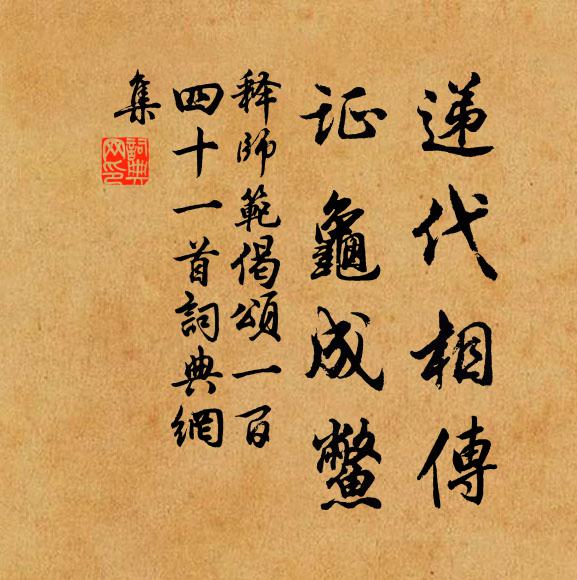 递代相傳
证龜成鱉
释師範偈頌一百
四十一首詞典網
集
詞典网印